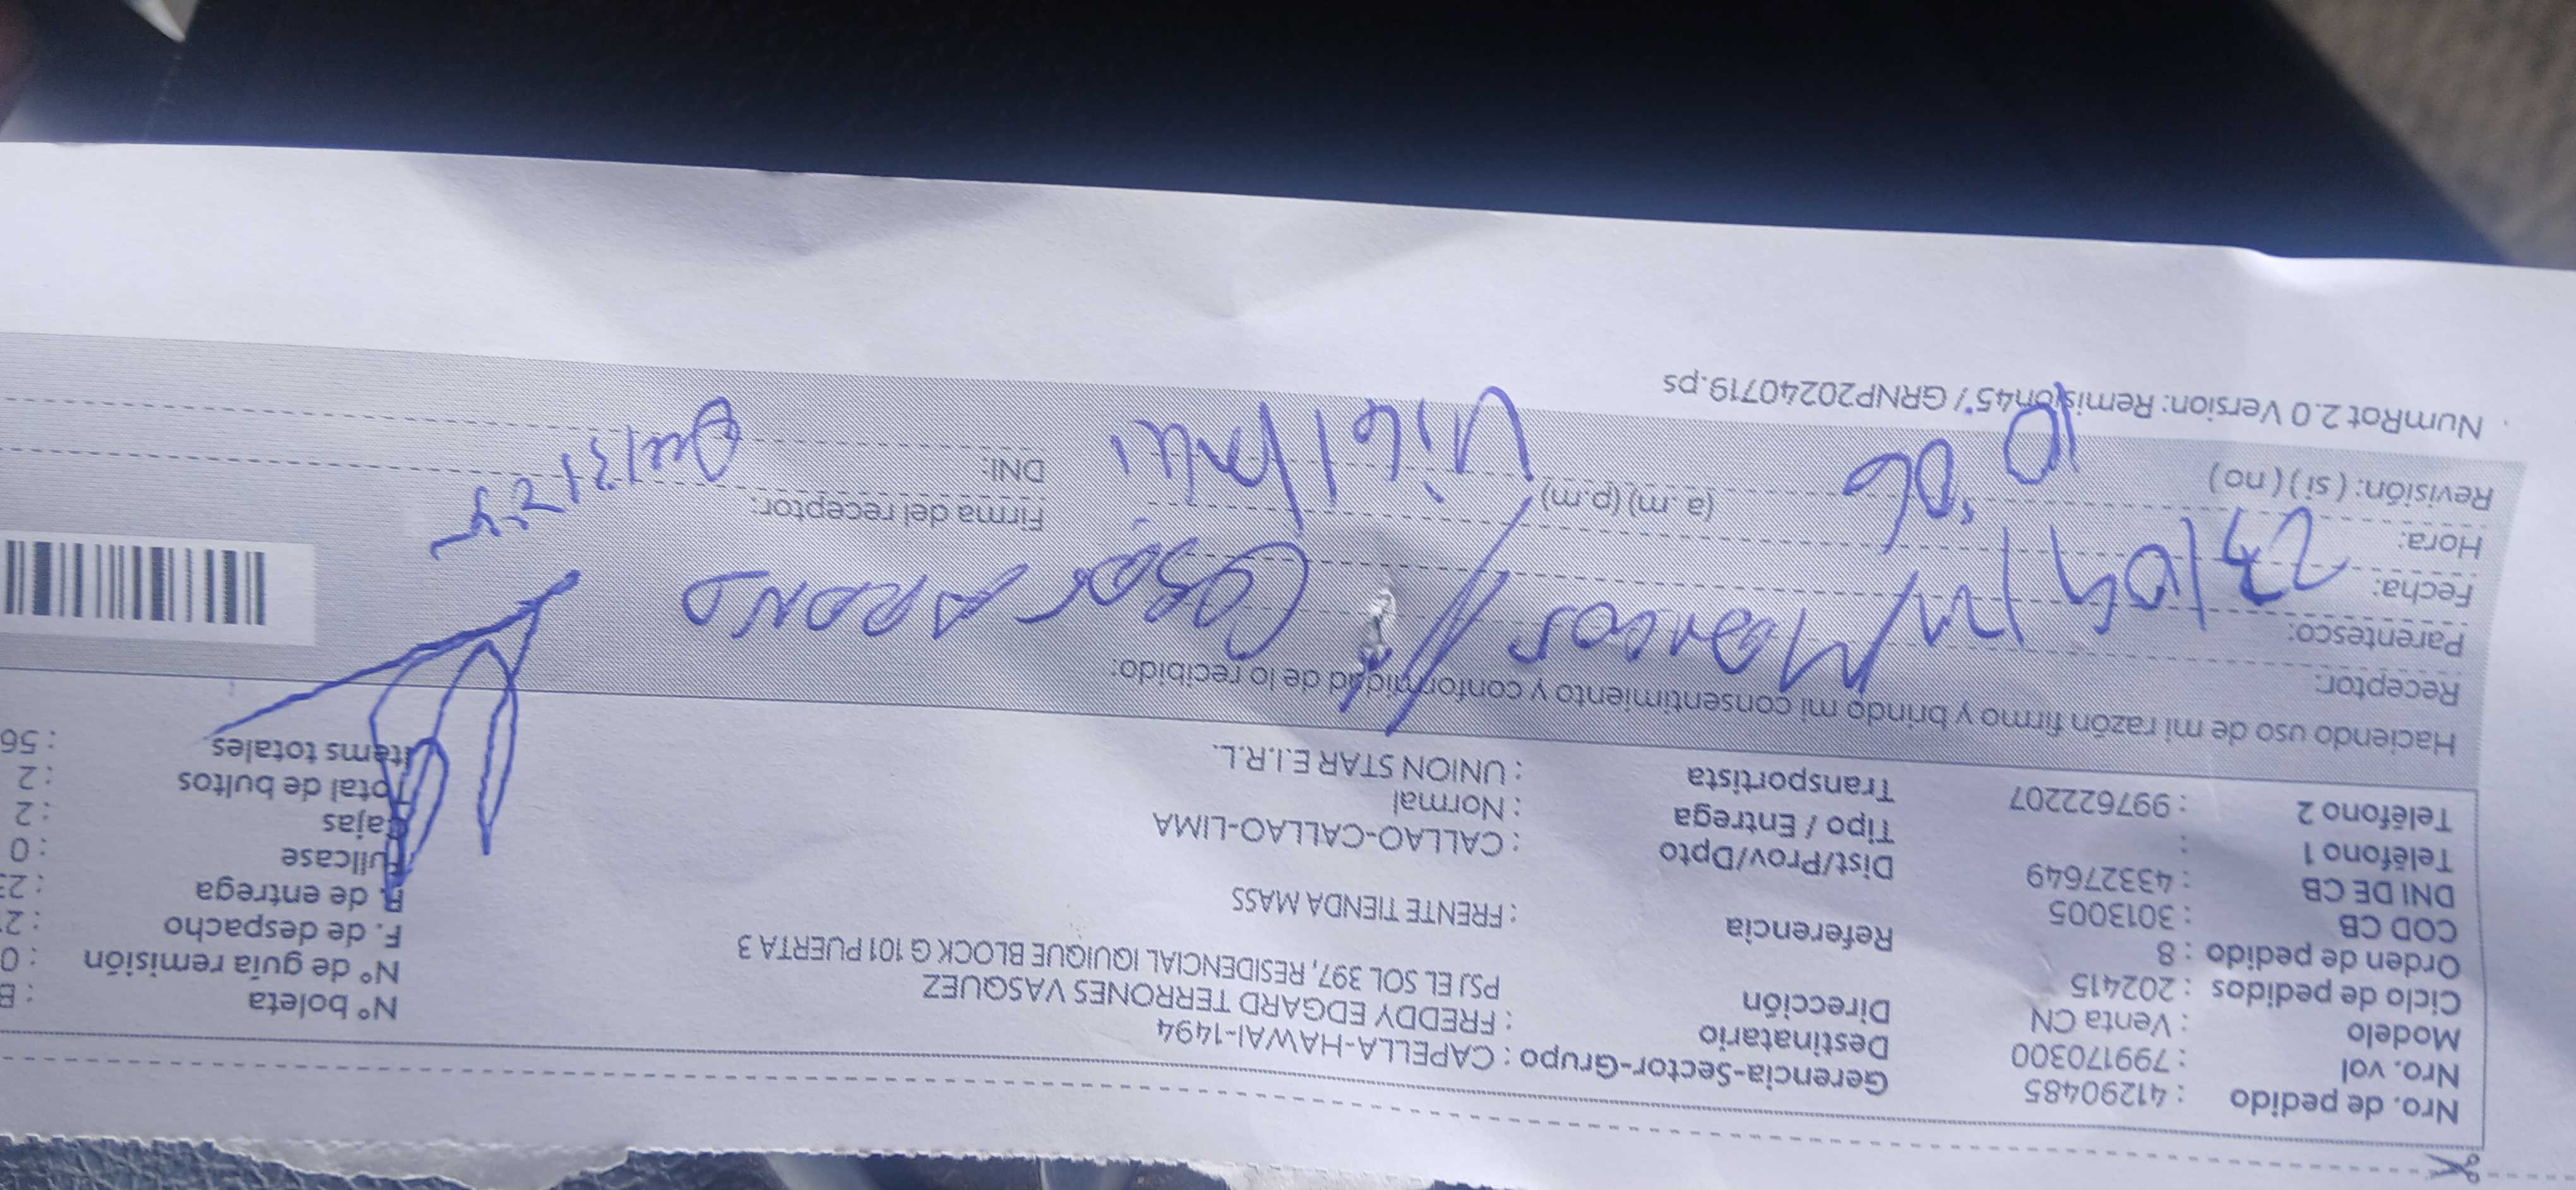 Nro. de pedido : 41290485
Nro. vol : 799170300
Modelo : Venta CN
Ciclo de pedidos : 202415
Orden de pedido : 8
COD CB : 3013005
DNI DE CB : 43327649
Teléfono 1 :
Teléfono 2 : 997622207
Gerencia-Sector-Grupo : CAPELLA-HAWAI-1494
Destinatario : FREDDY EDGARD TERRONES VASQUEZ
Dirección PSJ EL SOL 397, RESIDENCIAL IQUIQUE BLOCK G 101 PUERTA 3
Referencia : FRENTE TIENDA MASS
Dist/Prov/Dpto : CALLAO-CALLAO-LIMA
Tipo / Entrega : Normal
Transportista : UNION STAR E.I.R.L.
N° boleta : B
N° de guía remisión : 0
F. de despacho : 2
F. de entrega : 2
Fullcase : 0
Cajas : 2
Total de bultos : 2
Items totales : 56
Haciendo uso de mi razón firmo y brindo mi consentimiento y conformidad de lo recibido:
Receptor:
Parentesco: Marcos
Fecha:
Hora: 10:06 (a.m) (p.m)
Revisión: ( si ) ( no )
Firma del receptor:
DNI:
NumRot 2.0 Version: Remision45 / GRNP20240719.ps